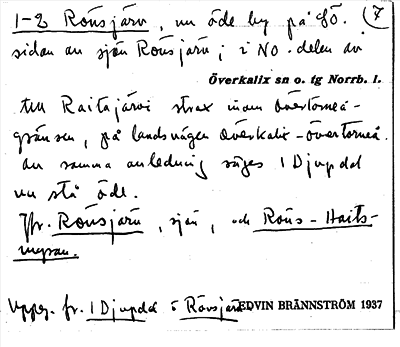 1-2 Rönsjärv, nu öde by på SÖ. 7
sidan av sjön Rönsjärv; i NO. delen av
Överkalix sn o. tg Norrb. l.
till Raitajärvi strax inom Övertorneå-
gränsen, på landsvägen Överkalix-Övertorneå.
av samma anledning säges 1 Djupdal
nu stå öde.
Jfr. Rönsjärv, sjön, och Röns-Haits-
myran.
Uppg. fr. 1 Djupdal o Rönsjärv
EDVIN BRÄNNSTRÖM 1937